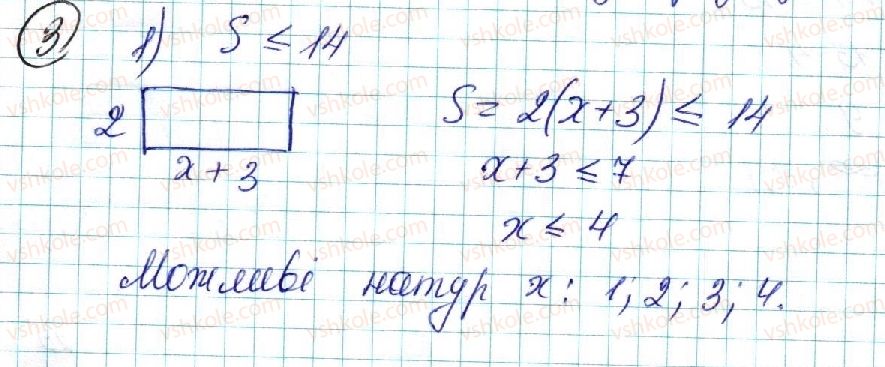 3 1) S ≤ 14
2
x + 3
S = 2(x+3) ≤ 14
x+3 ≤ 7
x ≤ 4
Можливі натур x: 1; 2; 3; 4.
vshkole.com